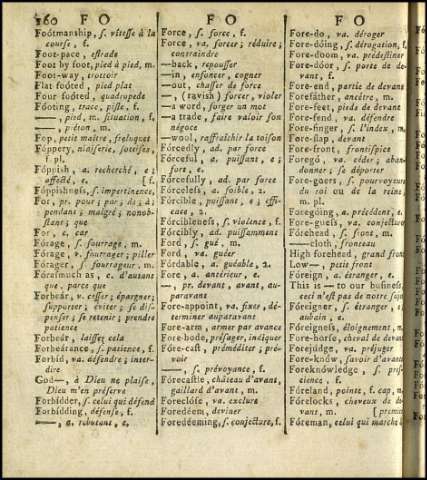 160 FO
Fóotmanship, ſ. vîteſſe à la
courſe, f.
Foot-pace, eſtrade
Foot by foot, pied à pied, m.
Foot-way, trottoir
Flat footed, pied plat
Four footed, quadrupede
Fóoting, trace, piſte, f.
——, pied, m. ſituation, f.
——, piéton, m.
Fop, petit maître, freluquet
Fóppery, niaiſerie, ſottiſes,
f. pl.
Fóppish, a. recherché, e;
affecté, e. [f.
Fóppiſhneſs, ſ. impertinence,
For, pr. pour; par; de; à;
pendant; malgré; nonob-
ſtant; que
For, c. car
Fórage, ſ. fourrage, m.
Fórage, v. fourrager; piller
Fórager, ſ. fourrageur, m.
Foraſmuch as, c. d'autant
que, parce que
Forbeár, v. ceſſer; épargner;
ſupporter; éviter; ſe diſ-
penſer; ſe retenir; prendre
patience
Forbeár, laiſſez cela
Forbeárance, ſ. patience, f.
Forbíd, va. défendre; inter-
dire
God—, à Dieu ne plaiſe,
Dieu m'en préſerve
Forbídder, ſ. celui qui défend
Forbídding, défenſe, f.
——, a. rebutant, e.
FO
Force, ſ. force, f.
Force, va. forcer; réduire;
contraindre
—back, repouſſer
—in, enfoncer, cogner
—out, chaſſer de force
—, (ravish) forcer, violer
—a word, forger un mot
—a trade, faire valoir ſon
négoce
—wool, raffraîchir la toiſon
Fórcedly, ad. par force
Fórceful, a. puiſſant, e;
fort, e.
Fórcefully, ad. par force
Fórceleſs, a. foible, 2.
Fórcible, puiſſant, e; effi-
cace, 2.
Fórcibleneſs, ſ. violence, f.
Fórcibly, ad. puiſſamment
Ford, ſ. gué, m.
Ford, va. guéer
Fórdable, a. guéable, 2.
Fore, a. antérieur, e.
—, pr. devant, avant, au-
paravant
Fore-appoint, va. fixer, dé-
terminer auparavant
Fore-arm, armer par avance
Fore-bode, préſager, indiquer
Fóre-caſt, préméditer; pré-
voir
——, ſ. prévoyance, f.
Fórecaſtle, château d'avant,
gaillard d'avant, m.
Forecloſe, va. exclure
Foredéem, deviner
Foredéeming, ſ. conjecture, f.
FO
Fore-do, va. déroger
Fore-dóing, ſ. dérogation, f.
Fore-doom, va. prédeſtiner
Fore-dóor, ſ. porte de de-
vant, f.
Fore-end, partie de devant
Forefáther, ancêtre, m.
Fore-feet, pieds de devant
Fore-fend, va. défendre
Fore-fínger, ſ. l'index, m.
Fore-flap, devant
Fore-front, frontiſpice
Foregó, va. céder, aban-
donner; ſe déporter
Fore-goers, ſ. pourvoyeurs
du roi ou de la reine,
m. pl.
Foregóing, a. précédent, e.
Fore-gueſs, va. conjecturer
Fórehead, ſ. front, m.
——cloth, fronteau
High forehead, grand front
Low—, petit front
Fóreign, a. étranger, e.
This is — to our buſineſs,
ceci n'eſt pas de notre ſujet
Fóreigner, ſ. étranger, e;
aubain, e.
Fóreigneſs, éloignement, m.
Fore-horſe, cheval de devant
Forejúdge, va. préjuger
Fore-knów, ſavoir d'avance
Foreknówledge, ſ. preſ-
cience, f.
Fóreland, pointe, f. cap, m.
Fórelocks, cheveux de de-
vant, m.
Fóreman, celui qui marche le